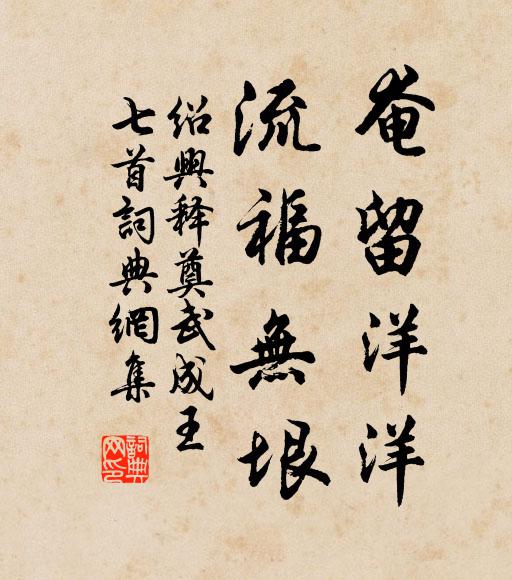 奄留洋洋
流福無垠
绍興释奠武成王
七首詞典網集
詞典
网印